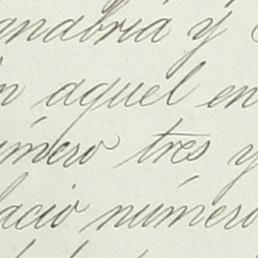 anabria y
n aquel en
úmero tres y
lacio número